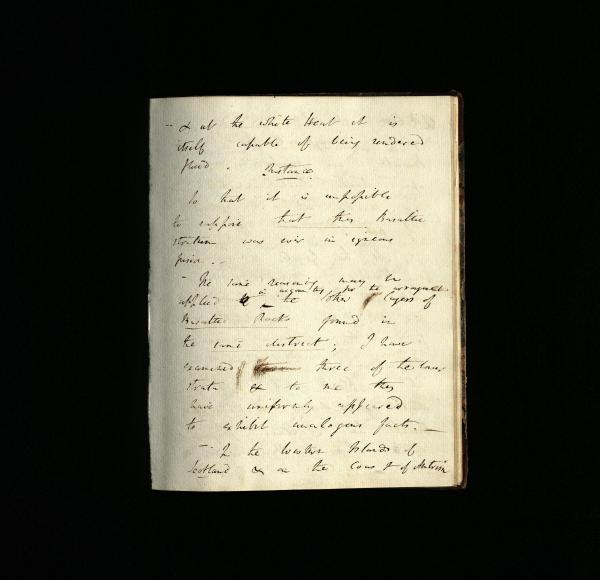 – & at the white Heat it is
itself capable of being rendered
fluid. Instance
So that it is impossible
to suppose that this Basaltic
stratum was ever in igneous
fusion. –
– The same reasoning may be
in argument for the arrangement
applied to the other layers of
Basaltic Rocks found in
the same district; I have
examined three of the lower
strata & to me they
have uniformly appeared
to exhibit analogous facts. –
– In the Western Islands of
Scotland & on the Coast of Antrim